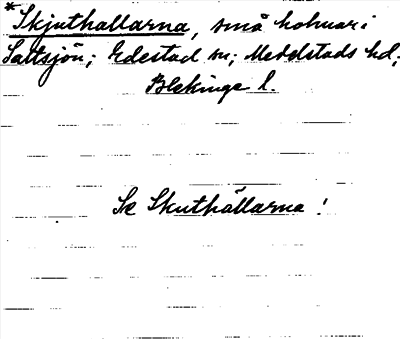 *Skjuthallarna, små holmar i
Saltsjön; Edestad sn; Medelstads hd;
Blekinge l.
Se Skuthällarna!